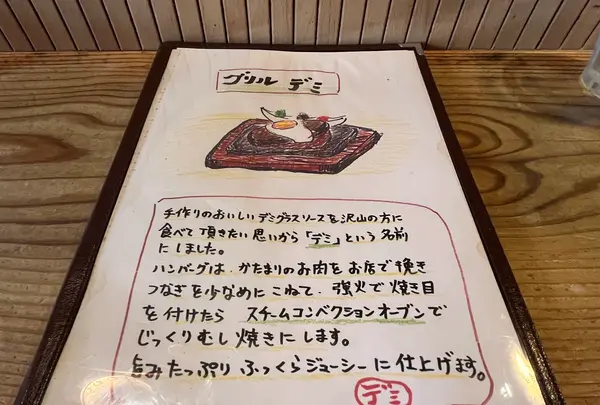 グリル デミ
手作りのおいしいデミグラスソースを沢山の方に
食べて頂きたい思いから「デミ」という名前
にしました。
ハンバーグは、かたまりのお肉をお店で挽き
つなぎを少なめにこねて、強火で焼き目
を付けたら スチームコンベクションオーブンで
じっくりむし焼きにします。
旨みたっぷり ふっくらジューシーに仕上げます。
デミ